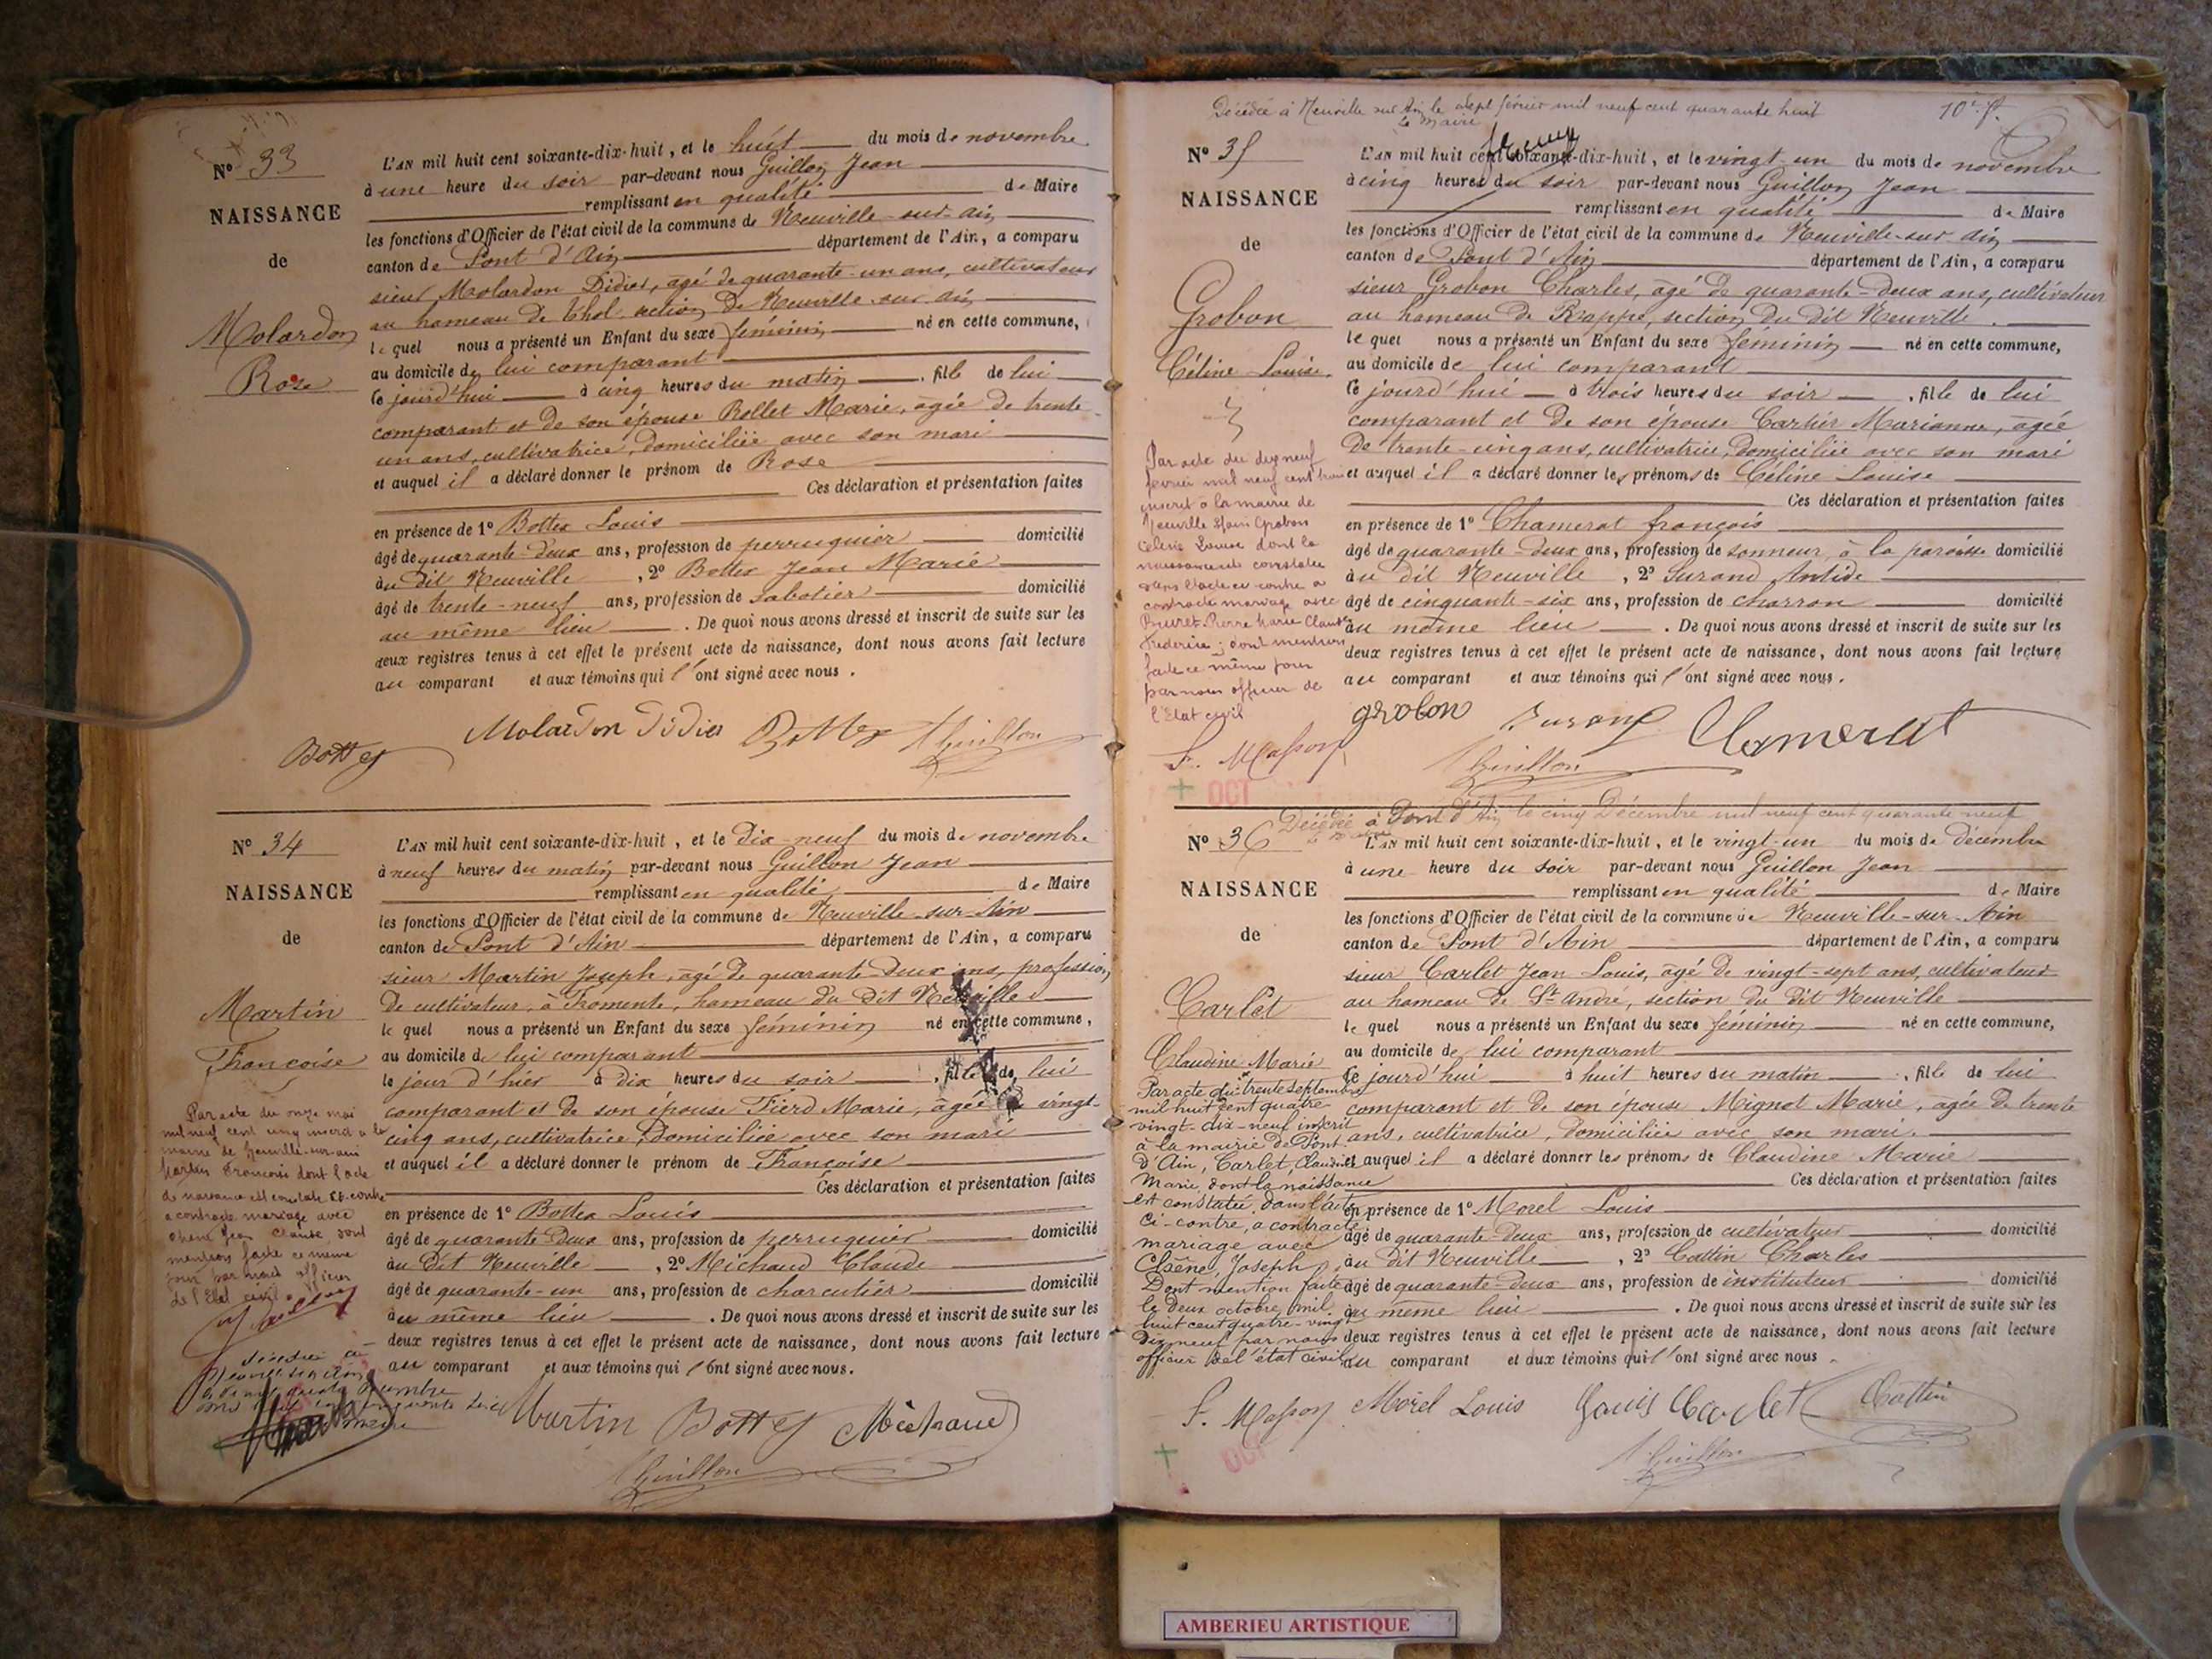 N° 33
NAISSANCE
de
Molardon
Rose
L'AN mil huit cent soixante-dix-huit, et le huit du mois de novembre
à une heure du soir par-devant nous Guillon Jean
remplissant en qualité de Maire
les fonctions d'Officier de l'état civil de la commune de Neuville-sur-ain
canton de Pont d'Ain département de l'Ain, a comparu
sieur Molardon Didier, agé de quarante-un ans, cultivateur
au hameau de Thol section de Neuville sur ain
lequel nous a présenté un Enfant du sexe féminin né en cette commune,
au domicile de lui comparant
ce jourd'hui à cinq heures du matin, fille de lui
comparant et de son épouse Bollet Marie, agée de trente-
un ans, cultivatrice, domiciliée avec son mari
et auquel il a déclaré donner le prénom de Rose
Ces déclaration et présentation faites
en présence de 1° Bottex Louis
âgé de quarante-deux ans, profession de perruquier domicilié
au dit Neuville, 2° Bottex Jean Marie
âgé de trente-neuf ans, profession de sabotier domicilié
au même lieu. De quoi nous avons dressé et inscrit de suite sur les
deux registres tenus à cet effet le présent acte de naissance, dont nous avons fait lecture
au comparant et aux témoins qui l'ont signé avec nous.
Molardon Didier Bottex Guillon
Bottex
N° 34
NAISSANCE
de
Martin
Françoise
Par acte du onze mai
mil neuf cent cinq inscrit à la
mairie de Neuville-sur-ain
Martin Françoise dont l'acte
de naissance est constaté ci-contre
a contracté mariage avec
Jean Claude, dont
mention faite ce même
jour par nous officier
de l'Etat civil.
L'AN mil huit cent soixante-dix-huit, et le Dix-neuf du mois de novembre
à neuf heures du matin par-devant nous Guillon Jean
remplissant en qualité de Maire
les fonctions d'Officier de l'état civil de la commune de Neuville-sur-Ain
canton de Pont d'Ain département de l'Ain, a comparu
sieur Martin Joseph, agé de quarante-deux ans, profession
de cultivateur, à Fromente, hameau du dit Neuville
lequel nous a présenté un Enfant du sexe féminin né en cette commune,
au domicile de lui comparant
le jour d'hier à dix heures du soir, fille de lui
comparant et de son épouse Tierd Marie, agée de vingt-
cinq ans, cultivatrice, domiciliée avec son mari
et auquel il a déclaré donner le prénom de Françoise
Ces déclaration et présentation faites
en présence de 1° Bottex Louis
âgé de quarante-deux ans, profession de perruquier domicilié
au dit Neuville, 2° Michaud Claude
âgé de quarante-un ans, profession de charcutier domicilié
au même lieu. De quoi nous avons dressé et inscrit de suite sur les
deux registres tenus à cet effet le présent acte de naissance, dont nous avons fait lecture
au comparant et aux témoins qui l'ont signé avec nous.
Martin Bottex Michaud
Guillon
Décédée à Neuville sur Ain le sept février mil neuf cent quarante huit
Le Maire
10e f.
N° 35
NAISSANCE
de
Grobon
Céline Louise
Par acte du dix neuf
février mil neuf cent trois
inscrit à la mairie de
Neuville s/ain Grobon
Céline Louise dont la
naissance est constatée
dans l'acte ci-contre a
contracté mariage avec
Buiret Pierre Marie Claude
Frédéric; dont mention
faite ce même jour
par nous officier de
l'Etat civil
F. Masson
OCT
L'AN mil huit cent soixante-dix-huit, et le vingt-un du mois de novembre
à cinq heures du soir par-devant nous Guillon Jean
remplissant en qualité de Maire
les fonctions d'Officier de l'état civil de la commune de Neuville-sur-ain
canton de Pont d'Ain département de l'Ain, a comparu
sieur Grobon Charles, agé de quarante-deux ans, cultivateur
au hameau de Rappe, section du dit Neuville.
lequel nous a présenté un Enfant du sexe féminin né en cette commune,
au domicile de lui comparant
ce jourd'hui à trois heures du soir, fille de lui
comparant et de son épouse Cartier Marianne, agée
de trente-cinq ans, cultivatrice, domiciliée avec son mari
et auquel il a déclaré donner les prénoms de Céline Louise
Ces déclaration et présentation faites
en présence de 1° Chamerat françois
âgé de quarante-deux ans, profession de sonneur à la paroisse domicilié
au dit Neuville, 2° Durand Antide
âgé de cinquante-six ans, profession de charron domicilié
au même lieu. De quoi nous avons dressé et inscrit de suite sur les
deux registres tenus à cet effet le présent acte de naissance, dont nous avons fait lecture
au comparant et aux témoins qui l'ont signé avec nous.
grobon Durand Chamerat
Guillon
Décédée à Pont d'Ain le cinq Décembre mil neuf cent quarante neuf
N° 36
NAISSANCE
de
Carlet
Claudine Marie
Par acte du trente septembre
mil huit cent quatre-
vingt-dix-neuf inscrit
à la mairie de Pont
d'Ain, Carlet Claudine
Marie, dont la naissance
est constatée dans l'acte
ci-contre, a contracté
mariage avec
Chêne, Joseph
Dont mention faite
le deux octobre mil
huit cent quatre-vingt
dix neuf par nous
officier de l'état civil
F. Masson
OCT
L'AN mil huit cent soixante-dix-huit, et le vingt-un du mois de décembre
à une heure du soir par-devant nous Guillon Jean
remplissant en qualité de Maire
les fonctions d'Officier de l'état civil de la commune de Neuville-sur-Ain
canton de Pont d'Ain département de l'Ain, a comparu
sieur Carlet Jean-Louis, agé de vingt-sept ans, cultivateur
au hameau de St André, section du dit Neuville
lequel nous a présenté un Enfant du sexe féminin né en cette commune,
au domicile de lui comparant
ce jourd'hui à huit heures du matin, fille de lui
comparant et de son épouse Mignot Marie, agée de trente
ans, cultivatrice, domiciliée avec son mari.
et auquel il a déclaré donner les prénoms de Claudine Marie
Ces déclaration et présentation faites
en présence de 1° Morel Louis
âgé de quarante-deux ans, profession de cultivateur domicilié
au dit Neuville, 2° Cottin Charles
âgé de quarante-deux ans, profession de instituteur domicilié
au même lieu. De quoi nous avons dressé et inscrit de suite sur les
deux registres tenus à cet effet le présent acte de naissance, dont nous avons fait lecture
au comparant et aux témoins qui l'ont signé avec nous.
Morel Louis Louis Carlet Cottin
Guillon
AMBERIEU ARTISTIQUE